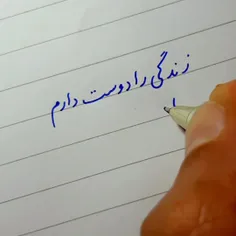 زندگی را دوست دارم